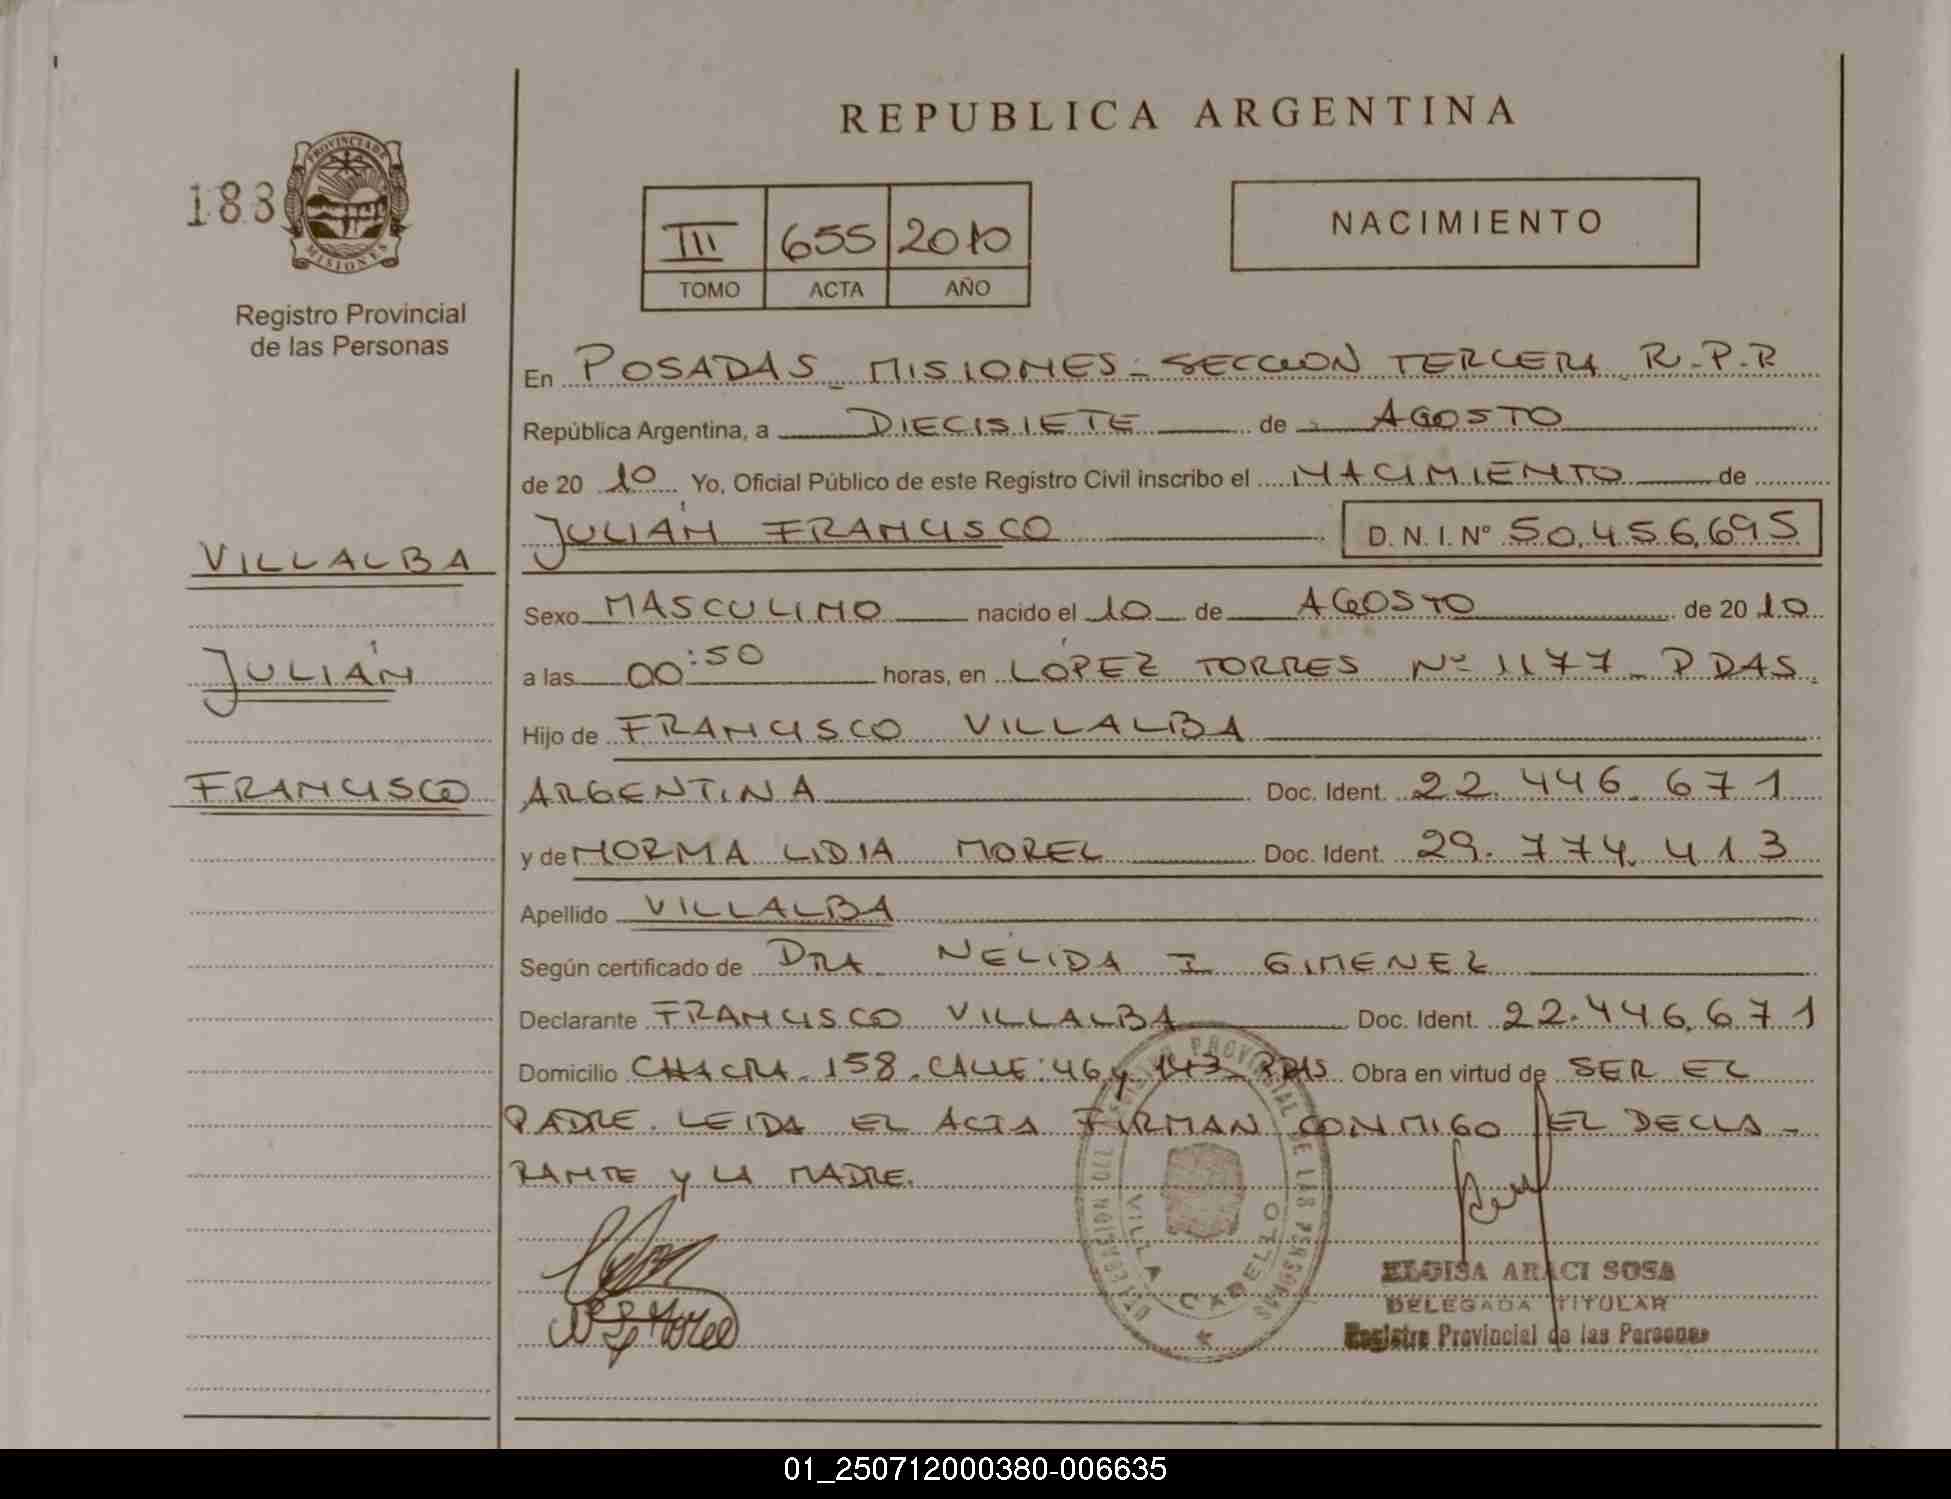 REPUBLICA ARGENTINA
183
PROVINCIA DE MISIONES
Registro Provincial
de las Personas
III 655 2010
TOMO ACTA AÑO
NACIMIENTO
En POSADAS - MISIONES - SECCION TERCERA R.P.P
República Argentina, a DIECISIETE de AGOSTO
de 20 10 Yo, Oficial Público de este Registro Civil inscribo el NACIMIENTO de
JULIÁN FRANCISCO D.N.I.Nº 50.456.695
VILLALBA
JULIÁN
FRANCISCO
Sexo MASCULINO nacido el 10 de AGOSTO de 20 10
a las 00:50 horas, en LÓPEZ TORRES Nº 1177 - PDAS.
Hijo de FRANCISCO VILLALBA
ARGENTINA Doc. Ident. 22.446.671
y de NORMA LIDIA MOREL Doc. Ident. 29.774.413
Apellido VILLALBA
Según certificado de DRA NÉLIDA I GIMENEZ
Declarante FRANCISCO VILLALBA Doc. Ident. 22.446.671
Domicilio CHACRA 158. CALLE: 46 y 143 PDAS Obra en virtud de SER EL
PADRE. LEIDA EL ACTA FIRMAN CONMIGO EL DECLA-
RANTE y LA MADRE.
DELEGACION DEL REGISTRO PROVINCIAL DE LAS PERSONAS
VILLA CABELLO
ELOISA ARACI SOSA
DELEGADA TITULAR
Registro Provincial de las Personas
01_250712000380-006635